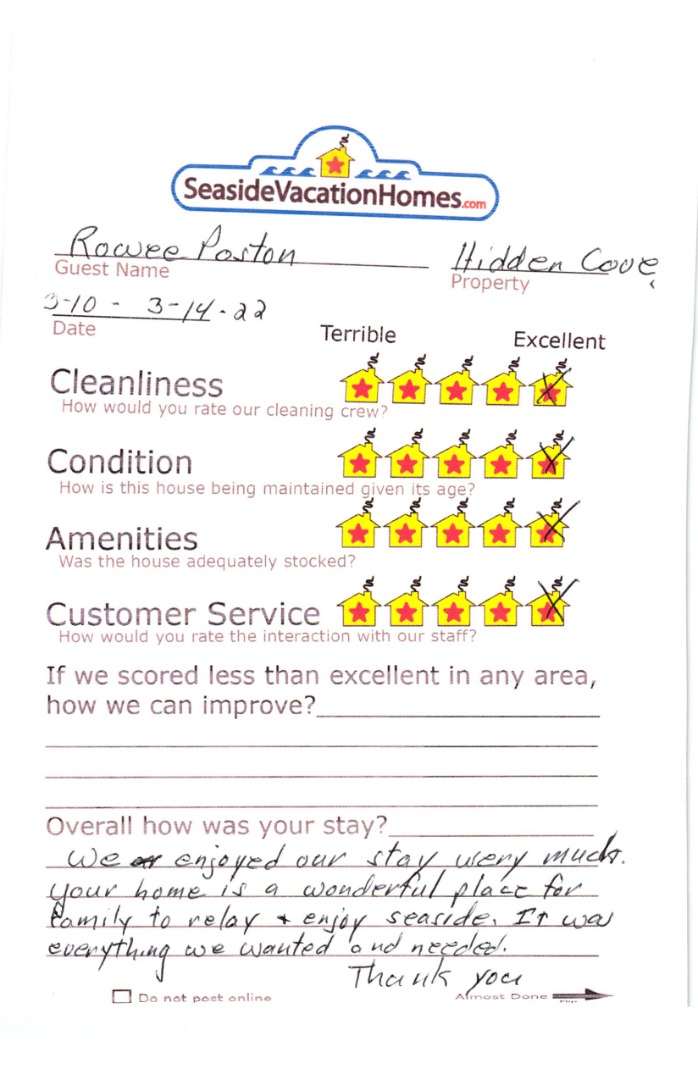 SeasideVacationHomes.com
Rowee Poston Hidden Cove
Guest Name Property
3-10 - 3-14-22
Date
Terrible Excellent
Cleanliness
How would you rate our cleaning crew?
Condition
How is this house being maintained given its age?
Amenities
Was the house adequately stocked?
Customer Service
How would you rate the interaction with our staff?
If we scored less than excellent in any area,
how we can improve?
Overall how was your stay?
We enjoyed our stay very much.
Your home is a wonderful place for
family to relay + enjoy seaside. It was
everything we wanted and needed.
Thank you
Do not post online Almost Done